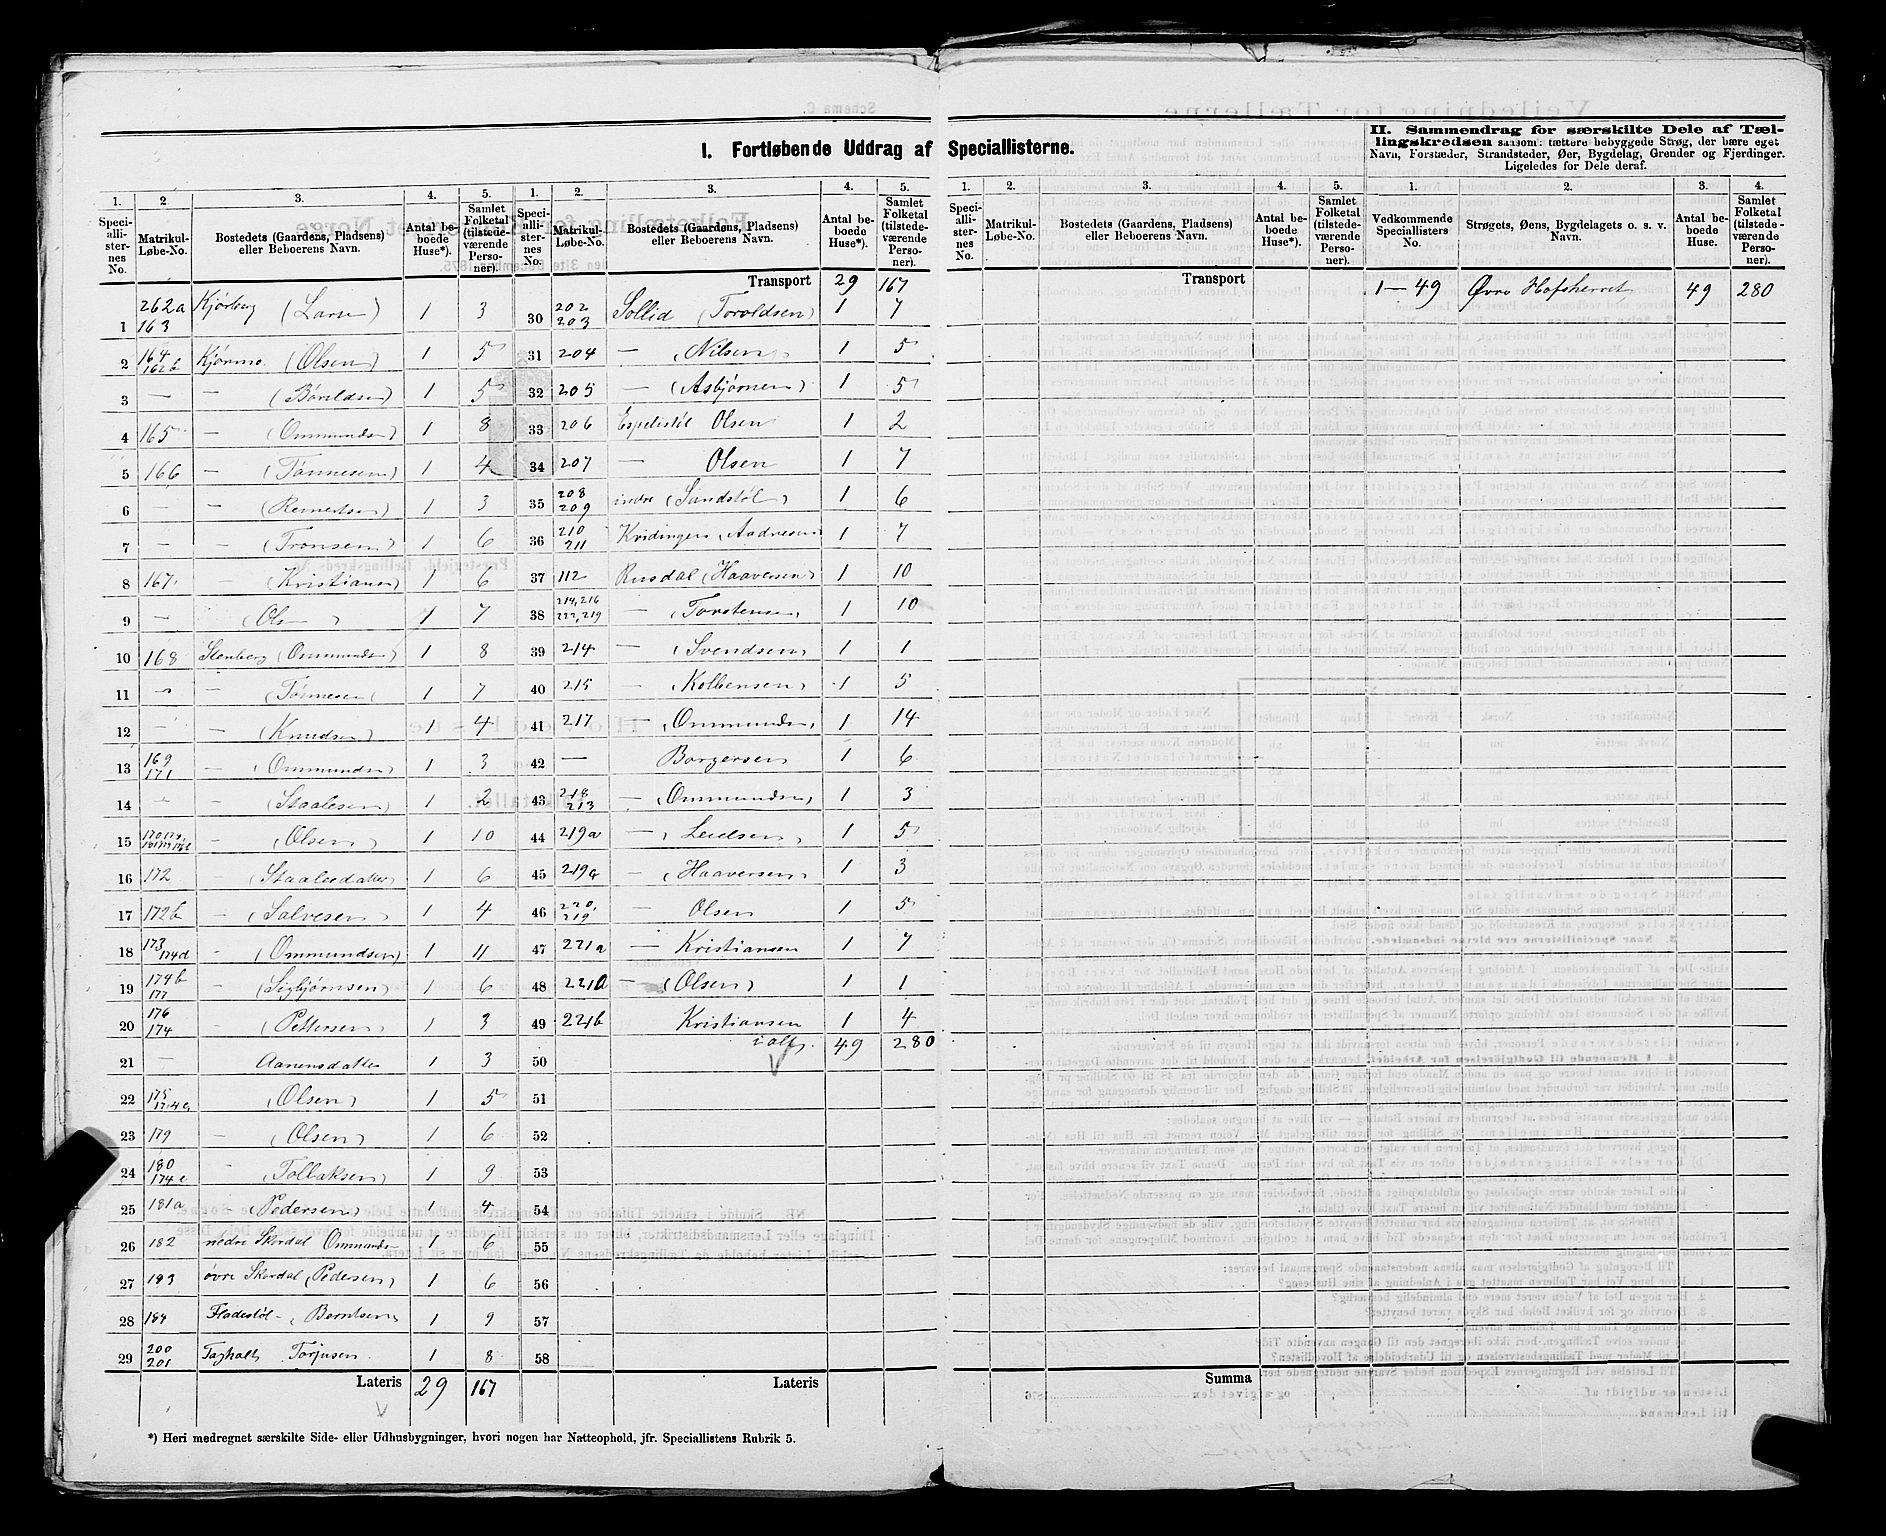 I. Fortløbende Uddrag af Speciallisterne.
II. Sammendrag for særskilte Dele af Tæl-
lingskredsen saasom: tættere bebyggede Strøg, der bære eget
Navn, Forstæder, Strandsteder, Øer, Bygdelag, Grender og Fjerdinger.
Ligeledes for Dele deraf.
1. 2 3. 4. 5. 1. 2. 3. 4. 5. 1. 2. 3. 4. 5. 1. 2. 3. 4.
Speciallisternes No. Matrikul-Løbe-No. Bostedets (Gaardens, Pladsens) eller Beboerens Navn. Antal beboede Huse*). Samlet Folketal (tilstedeværende Personer).
Speciallisternes No. Matrikul-Løbe-No. Bostedets (Gaardens, Pladsens) eller Beboerens Navn. Antal beboede Huse*). Samlet Folketal (tilstedeværende Personer).
Speciallisternes No. Matrikul-Løbe-No. Bostedets (Gaardens, Pladsens) eller Beboerens Navn. Antal beboede Huse*). Samlet Folketal (tilstedeværende Personer).
Vedkommende Speciallisters No. Strøgets, Øens, Bygdelagets o. s. v. Navn. Antal beboede Huse. Samlet Folketal (tilstedeværende Personer).
1 262a 163 Kjørberg (Larsen) 1 3
2 164 162b Kjørmo (Olsen) 1 5
3 — — 1 5
4 165 — (Ommundsen) 1 8
5 166 — (Tønnesen) 1 4
6 — — 1 3
7 — — (Tronsen) 1 6
8 167 — (Kristiansen) 1 6
9 — (Ols—) 1 7
10 168 Stenberg (Ommundsen) 1 8
11 — — (Tønnesen) 1 7
12 — — (Knudsen) 1 4
13 169 171 — (Ommundsen) 1 3
14 — — (Staalesen) 1 2
15 — (Olsen) 1 10
16 172 — (Staalesdatter) 1 6
17 172b — (Salvesen) 1 4
18 173 174d — (Ommundsen) 1 11
19 174b 177 — (Sigbjørnsen) 1 6
20 176 174 — (Pettersen) 1 3
21 — Aanensdatter 1 3
22 175 174a (Olsen) 1 5
23 179 — (Olsen) 1 6
24 180 174c — (Tollaksen) 1 9
25 181a — (Pedersen) 1 4
26 182 nedre Skordal Ommunds— 1 6
27 183 øvre Skordal (Pedersen) 1 6
28 184 Fladestøl — (Berntsen) 1 9
29 200 201 Torjusen 1 8
Lateris 29 167
Transport 29 167
30 202 203 Sollid (Toroldsen) 1 7
31 204 — (Nilsen) 1 5
32 205 — (Asbjørnsen) 1 5
33 206 Espelistøl Olsen 1 2
34 207 — Olsen 1 7
35 208 209 indre (Sandstøl) 1 6
36 210 211 Kvidingen (Aadnesen) 1 7
37 112 Rusdal (Haaversen) 1 10
38 214, 216 222, 219 — (Torstensen) 1 10
39 214 — (Svendsen) 1 1
40 215 — (Kolbensen) 1 5
41 217 — (Ommundsen) 1 14
42 — Borgersen 1 6
43 218 213 — (Ommundsen) 1 3
44 219a — 1 5
45 219c — (Haaversen) 1 3
46 220, 219 — Olsen 1 5
47 221a — Kristiansen 1 7
48 221a — (Olsen) 1 1
49 221b Kristiansen 1 4
50 ialt 49 280
51
52
53
54
55
56
57
58
Lateris
Transport
Summa
1—49 Øvre Hofsherret 49 280
*) Heri medregnet særskilte Side- eller Udhusbygninger, hvori nogen har Natteophold, jfr. Speciallistens Rubrik 5.